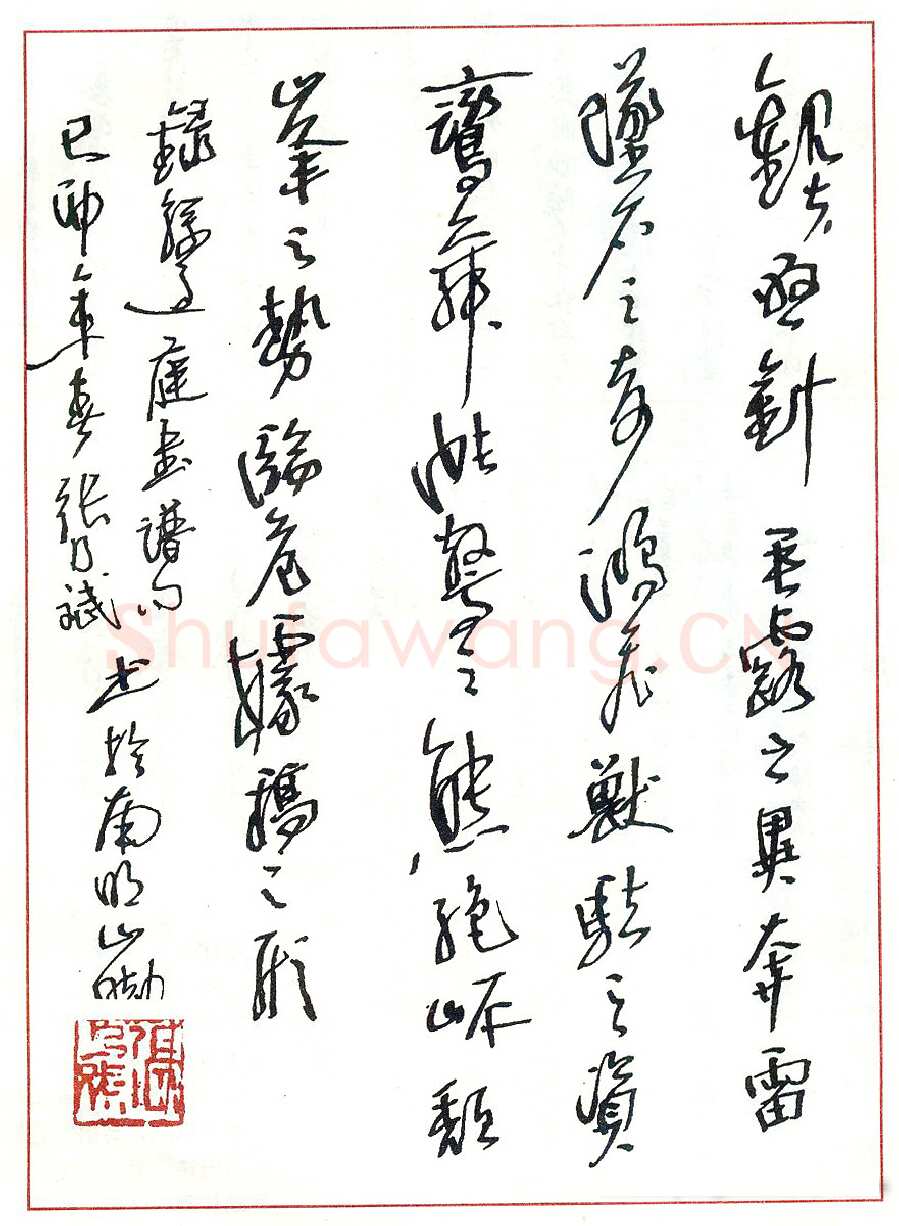 觀夫懸針垂露之異奔雷
墜石之奇鴻飛獸駭之資
鸞舞蛇驚之態絕岸頹
峯之勢臨危據槁之形
錄孫過庭書譜句
己卯年春張乃斌書於南明山
Shufawang.CN